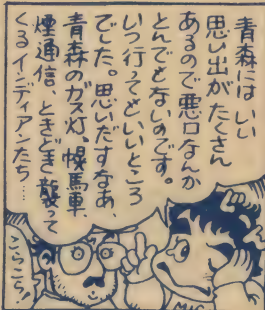 青森には いい
思い出が たくさん
あるので悪口なんか
とんでもないのです。
いつ行ってもいいところ
でした。思いだすなあ、
青森のガス灯、幌馬車、
煙通信、ときどき襲って
くるインディアンたち…
こらこら!
MIC